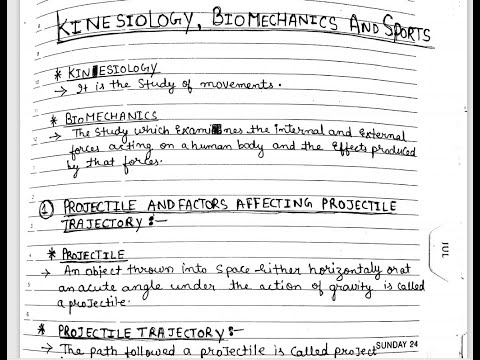 KINESIOLOGY, BIOMECHANICS AND SPORTS
* KINESIOLOGY
→ It is the study of movements.
* BIOMECHANICS
→ The study which examines the internal and External
forces acting on a human body and the effects produced
by that forces.
① PROJECTILE AND FACTORS AFFECTING PROJECTILE
TRAJECTORY :-
* PROJECTILE
→ An object thrown into space either horizontaly or at
an acute angle under the action of gravity is called
a projectile.
JUL
* PROJECTILE TRAJECTORY :-
SUNDAY 24
→ The path followed a projectile is called project